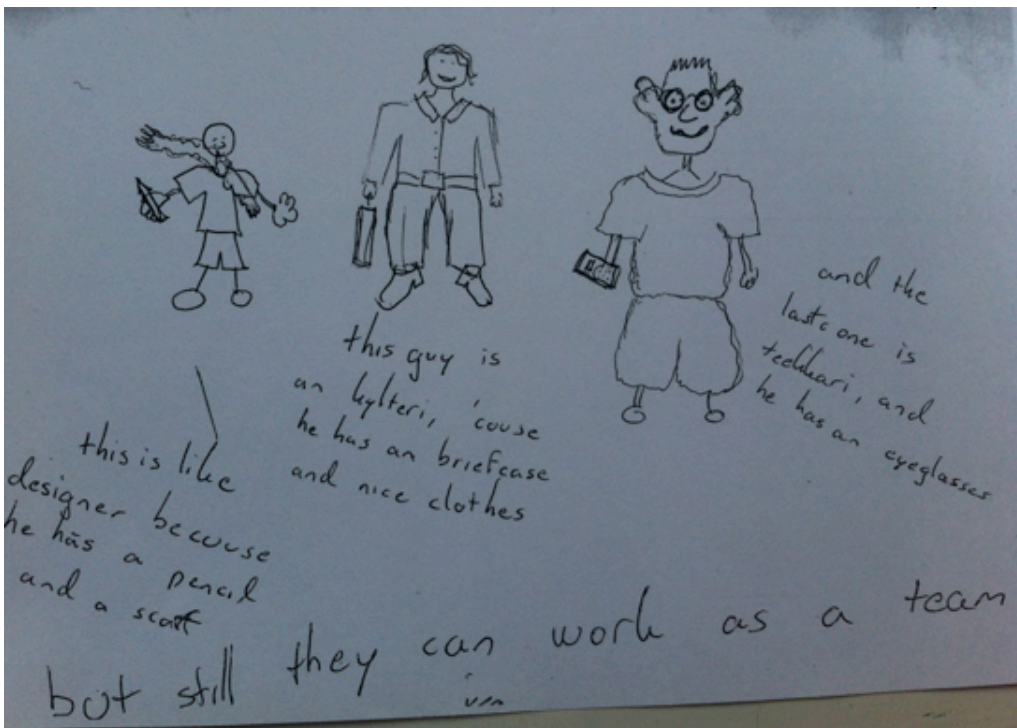 this is like
designer because
he has a pencil
and a scarf
this guy is
an kylteri, 'couse
he has an briefcase
and nice clothes
and the
last one is
teekkari, and
he has an eyeglasses
but still they can work as a team